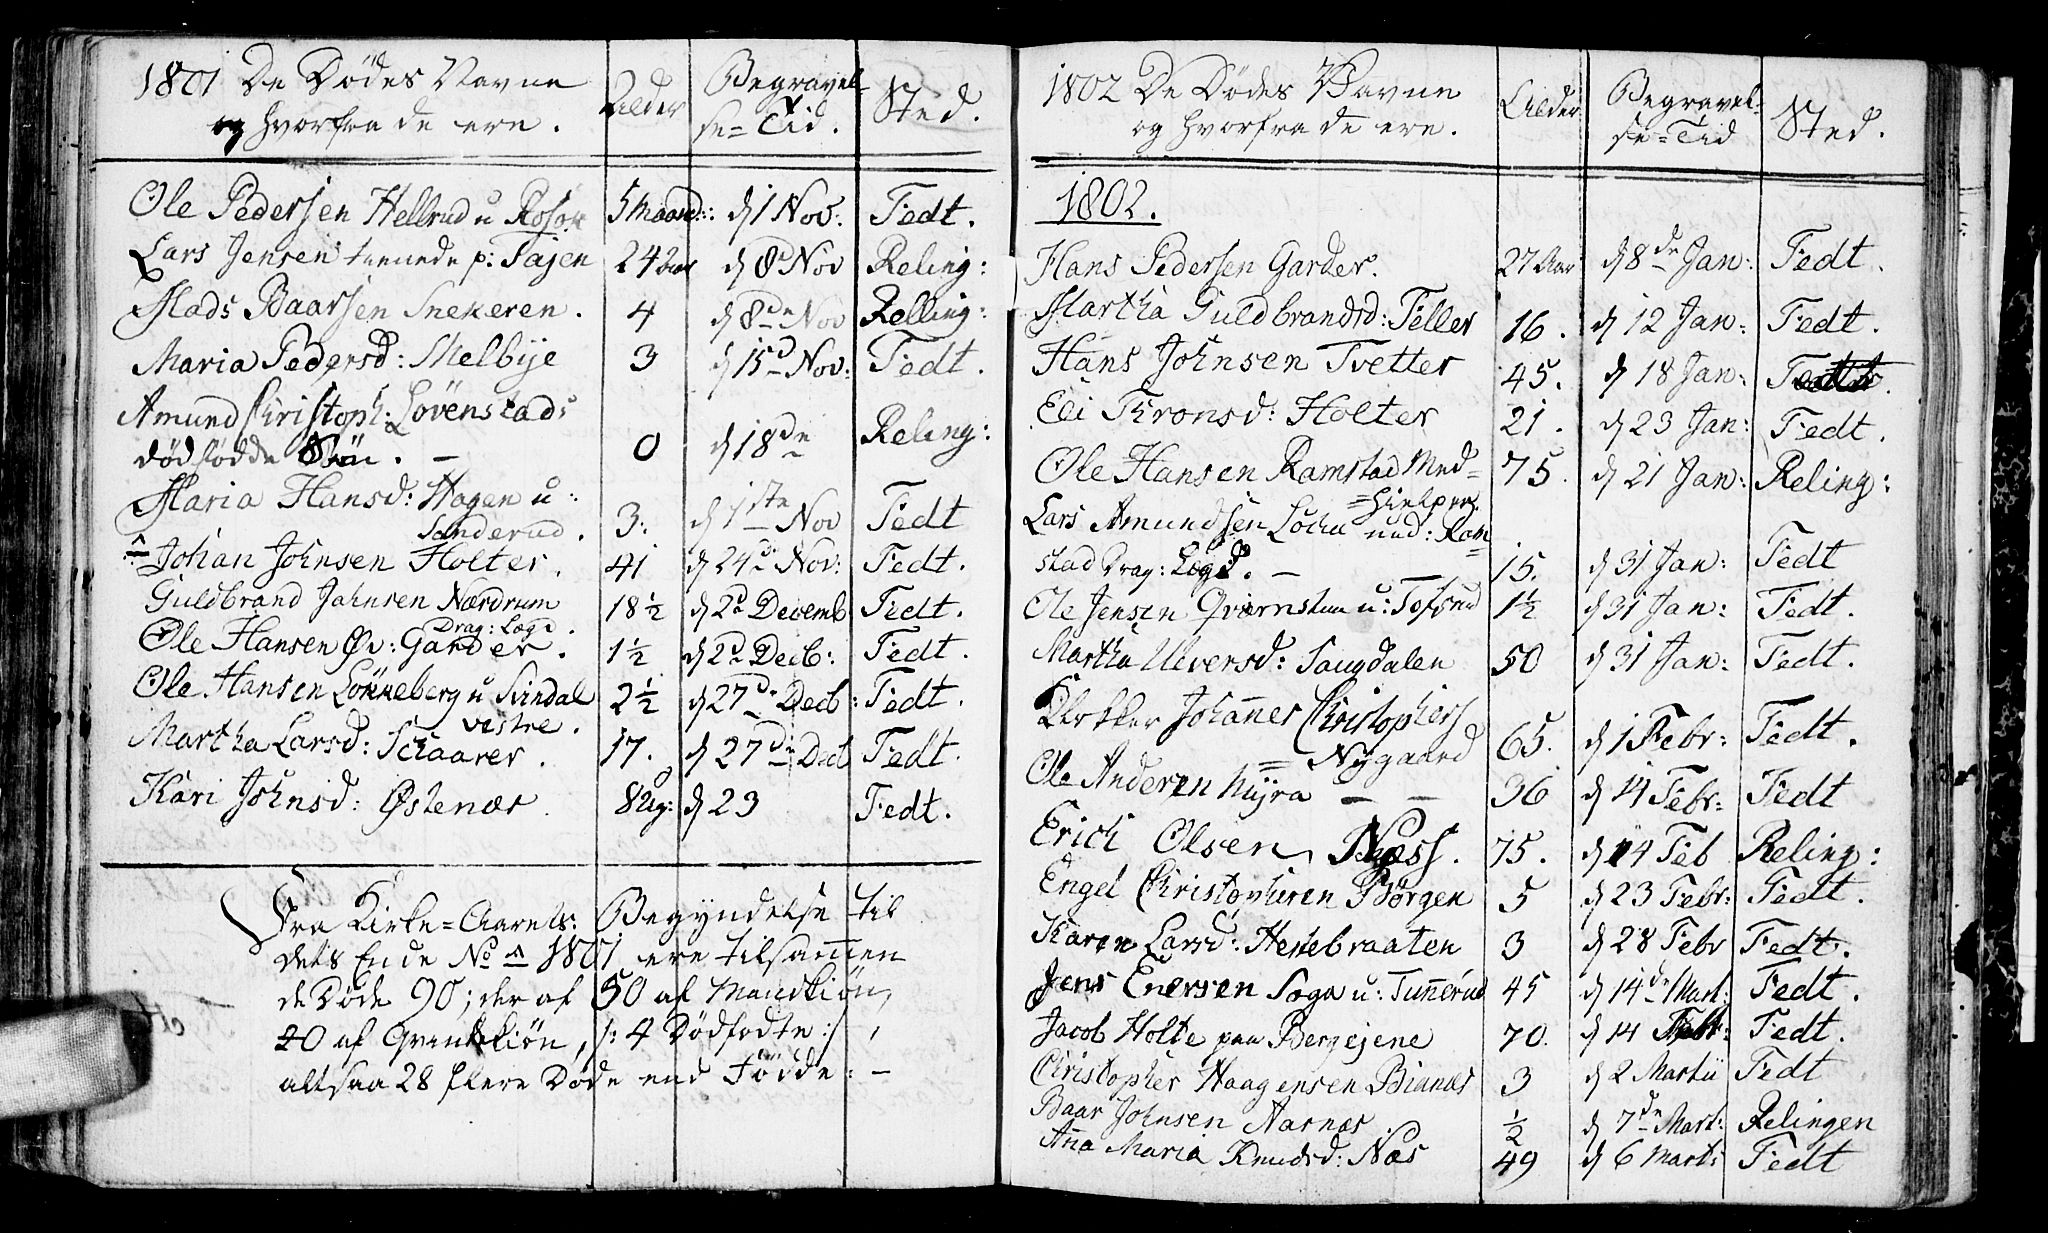 1801 De Dødes Navne
og hvorfra de ere.
Alder
Begravel-
se-Tid.
Sted.
Ole Pedersen Hellrud u 5 Maaned: d 1 Nov: Fedt.
Lars Jensen p: Tajen 24 Aar d 8d Nov Reling:
Mads Baarsen Snekeren. 4 d 8de Nov Relling:
Maria Pedersd: Melbye 3 d 15d Nov: Fedt.
Amund Christoph: Lövenstads
dödfödde Sön. — 0 d 18de Reling:
Maria Hansd: Hagen u:
Sanderud. 3. d 1ste Nov Fedt
Johan Johnsen Holter. 41 d 24d Nov: Fedt.
Guldbrand Jahnsen Nærdrum 18½ d 2d Decemb Fedt.
Drag: Lægd.
Ole Hansen Øv: Garder. 1½ d 2d Decb: Fedt.
Ole Hansen Lönneberg u Svindal 2½ d 27d Decb: Fedt.
vestre.
Martha Larsd: Schaarer. 17. d 27de Decb Fedt.
Kari Johnsd: Østenær. 8 Ug: d 23 Fedt.
Fra Kirke=Aarets: Begyndelse til
dets Ende No 1801 ere tilsammen
de Døde 90; der af 50 af Mandkiön,
40 af Qvindekiön, /: 4 Dödfödte :/,
altsaa 28 flere Døde end Födde: —
1802 De Dødes Navne
og hvorfra de ere.
Alder
Begravel-
se=Tid
Sted.
1802.
Hans Pedersen Garder. 27 Aar d 8de Jan: Fedt.
Martha Guldbrandsd: Teller 16. d 12 Jan: Fedt.
Hans Johnsen Tvetter 45. d 18 Jan: Fedt.
Eli Thronsd: Holter 21. d 23 Jan: Fedt.
Ole Hansen Ramstad Med= 75. d 21 Jan: Reling:
=hielper.
Lars Amundsen Locha und: Ram=
stad Drag: Lægd. — 15. d 31 Jan: Fedt
Ole Jensen Qværnstuen u: Tofsrud 1½ d 31 Jan: Fedt.
Martha Uversd: Saugdalen 50 d 31 Jan: Fedt.
Klokker Johannes Christophers
= Nygaard 65. d 1 Febr: Fedt.
Ole Andersen Myra — — 36 d 14 Febr: Fedt
Erich Olsen Næss. 75. d 14 Feb Reling:
Engel Christophersen Borgen 5 d 23 Febr: Fedt.
Karen Larsd: Hexebraaten 3 d 28 Febr Fedt.
Jens Enersen Soga u: Tunnerud 45 d 14de Mart: Fedt.
Jacob Holte paa Bergejene 70. d 14 Febr: Fedt.
Christopher Haagensen Bianæs 3 d 2 Martii Fedt
Baar Johnsen Aarnæs ½ d 7de Mart: Relingen
Anna Maria Knudsd: Næs 49 d 6 Marts Fedt